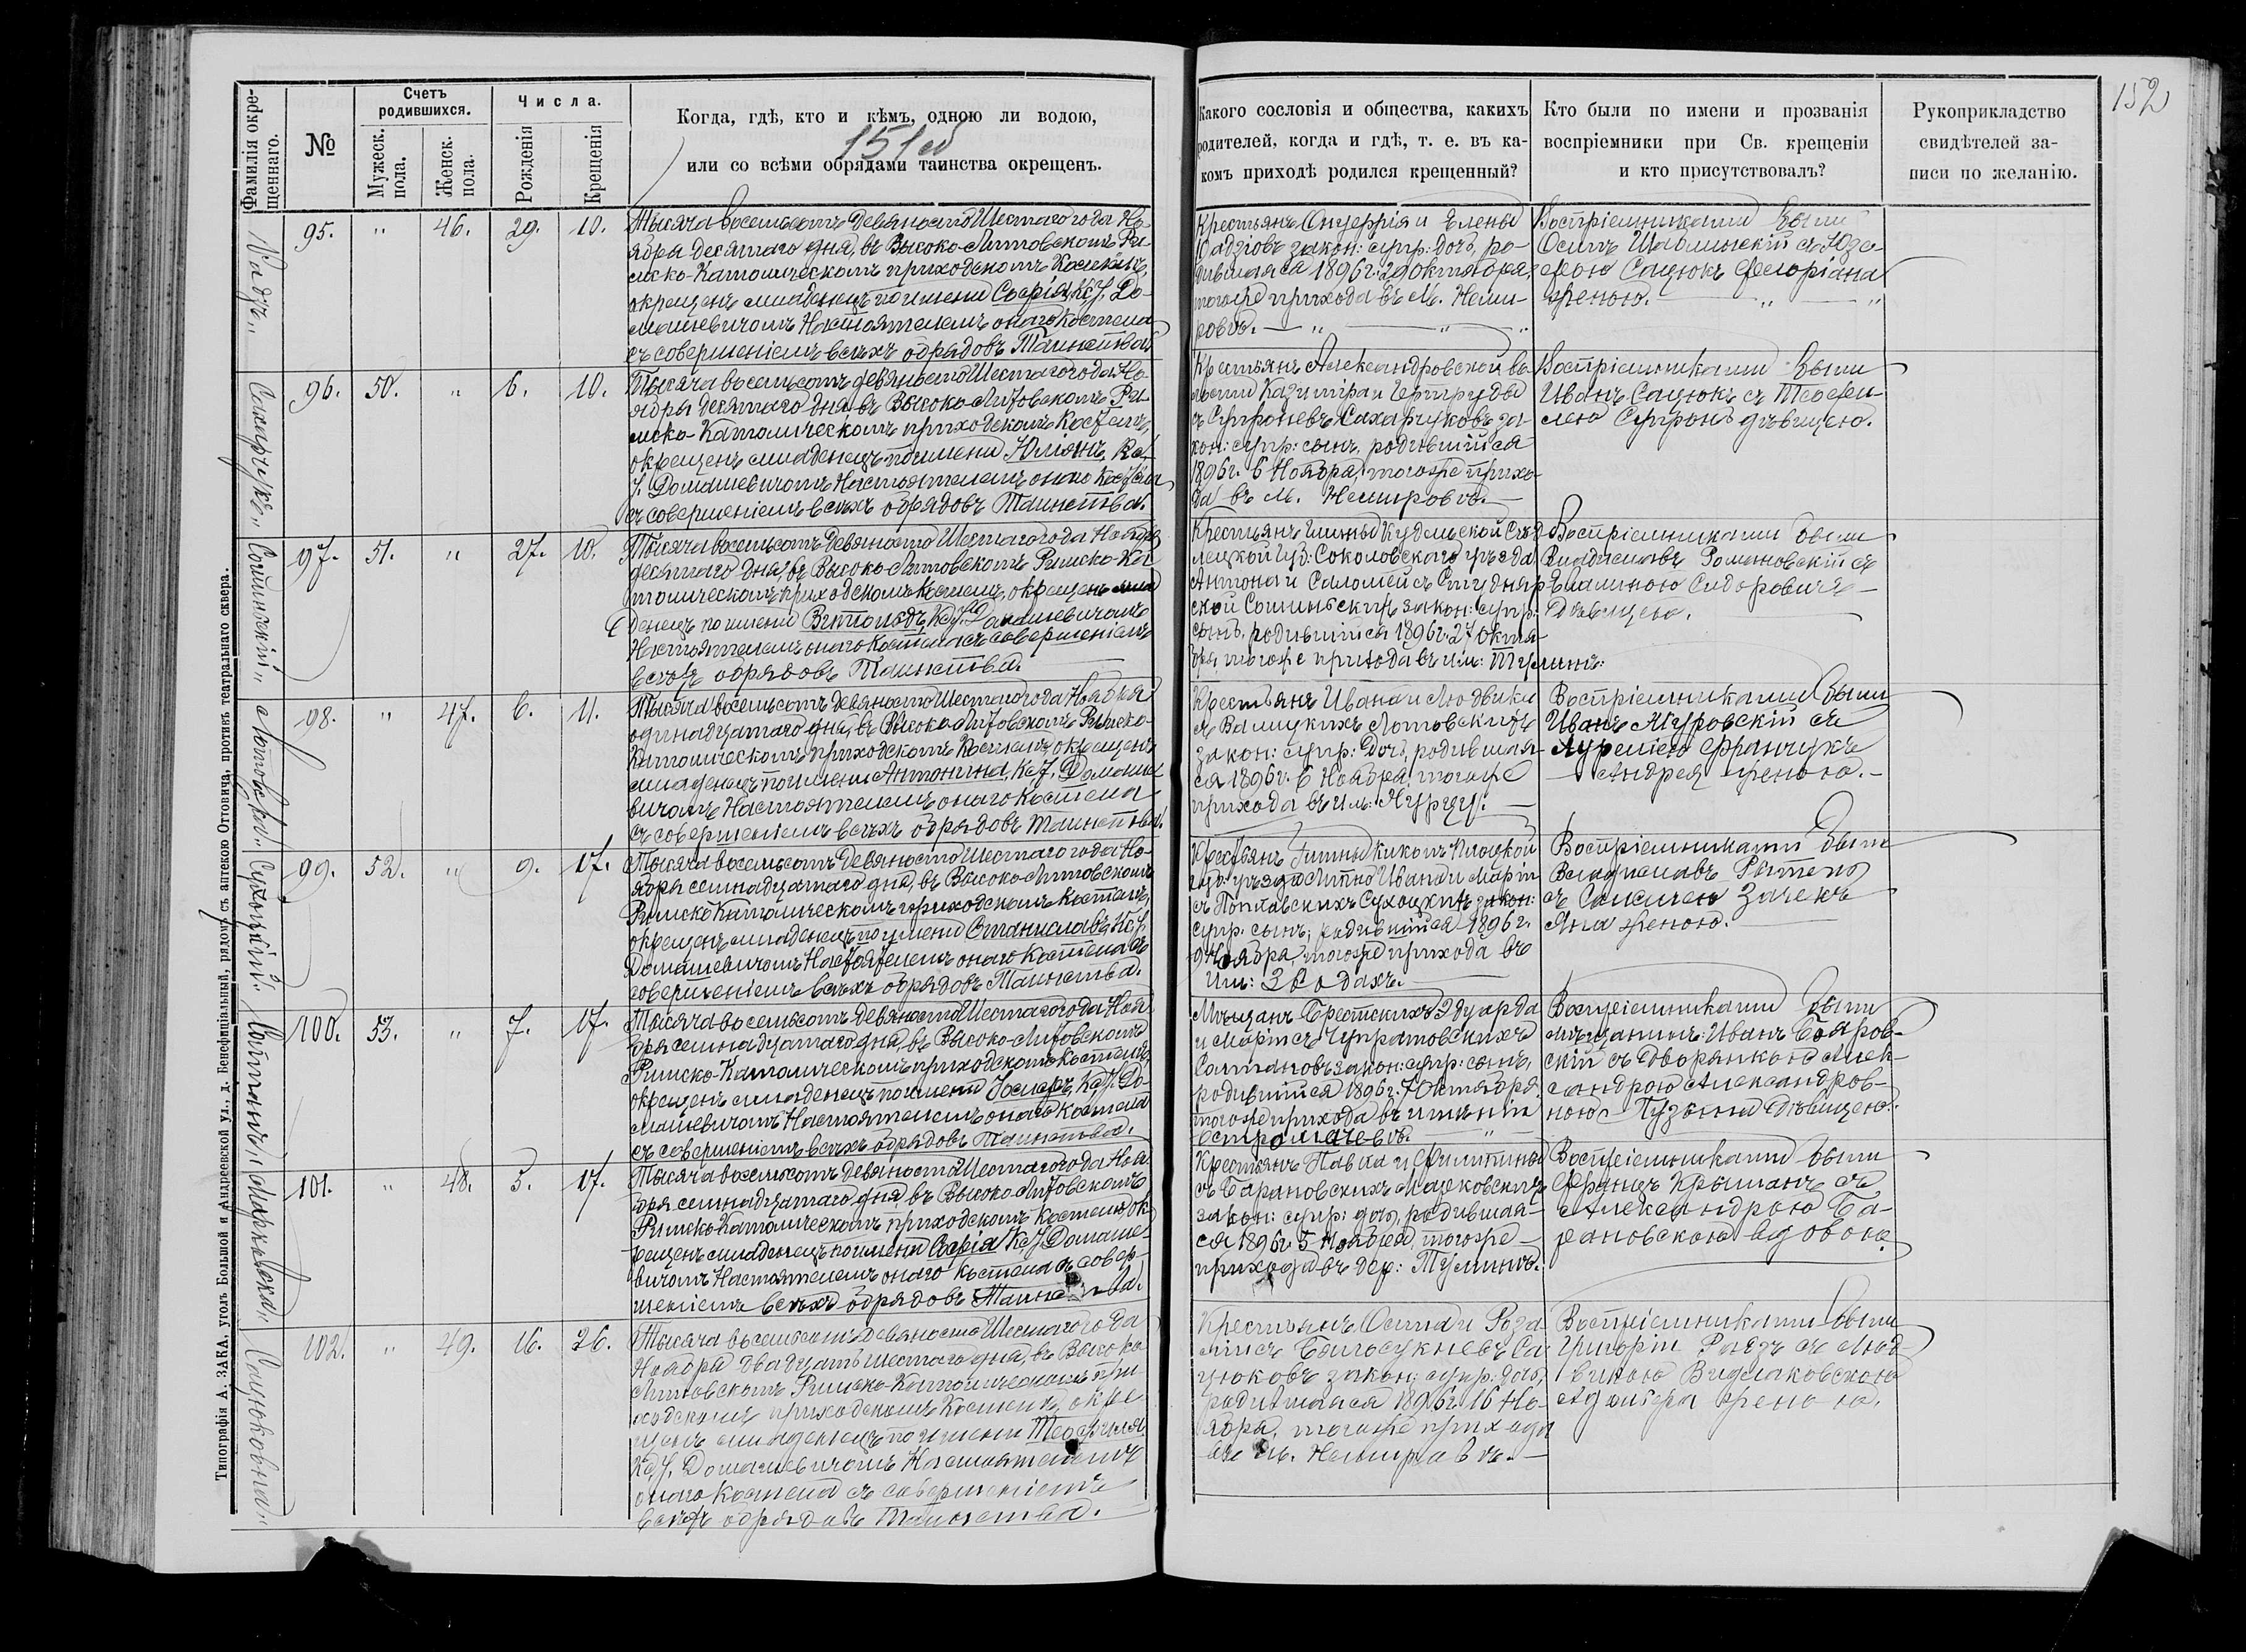 152
151 об
Фамилія окре-
щеннаго.
№
Счетъ
родившихся.
Мужеск.
пола.
Женск.
пола.
Числа.
Рожденія
Крещенія
Когда, гдѣ, кто и кѣмъ, одною ли водою,
или со всѣми обрядами таинства окрещенъ.
Какого сословія и общества, какихъ
родителей, когда и гдѣ, т. е. въ ка-
комъ приходѣ родился крещенный?
Кто были по имени и прозванія
воспріемники при Св. крещеніи
и кто присутствовалъ?
Рукоприкладство
свидѣтелей за-
писи по желанію.
95. " 46. 29. 10.
Тысяча восемьсотъ девяносто Шестаго года Но-
ября десятаго дня, въ Высоко-Литовскомъ Ри-
мско-Католическомъ приходскомъ Костелѣ,
окрещенъ младенецъ по имени Софія, Кс. І. До-
машевичомъ Настоятелемъ онаго Костела
съ совершеніемъ всѣхъ обрядовъ Таинства.
Крестьянъ Онуфрія и Елены
закон: супр: дочь, ро-
дившаяся 1896 г. 29 Октября,
тогоже прихода въ м. Неми-
ровѣ.
Воспріемниками были
Осипъ съ Юзе-
фою Сацюкъ Флоріана
женою.
96. 50. " 6. 10.
Сахарчукъ
Тысяча восемьсотъ девяносто Шестаго года Но-
ября десятаго дня въ Высоко-Литовскомъ Ри-
мско-Католическомъ приходскомъ Костелѣ,
окрещенъ младенецъ по имени Юліянъ, Кс.
І. Домашевичомъ Настоятелемъ онаго Костела
съ совершеніемъ всѣхъ обрядовъ Таинства.
Крестьянъ Александровской во-
лости Казиміра и Гертруды
съ Супроневъ Сахарчуковъ за-
кон: супр: сынъ, родившійся
1896 г. 6 Ноября, тогоже прихо-
да въ м. Немировѣ.
Воспріемниками были
Иванъ Сацюкъ съ Теофи-
лею Супронъ дѣвицею.
97. 51. " 27. 10.
Тысяча восемьсотъ девяносто Шестаго года Ноября
десятаго дня, въ Высоко-Литовскомъ Римско-Ка-
толическомъ приходскомъ Костелѣ, окрещенъ мла-
денецъ по имени Витольдъ, Кс. І. Домашевичомъ
Настоятелемъ онаго Костела съ совершеніемъ
всѣхъ обрядовъ Таинства.
Крестьянъ гмины Кудельской Сѣд-
лецкой губ: Соколовскаго уѣзда
Антона и Саломеи съ
закон: супр:
сынъ, родившійся 1896 г. 27 Октя-
бря, тогоже прихода въ им:
Воспріемниками были
Владиславъ Романовскій съ
Сидоровичъ
дѣвицею.
98. " 47. 6. 11.
Тысяча восемьсотъ девяносто Шестаго года Ноября
одинадцатаго дня, въ Высоко-Литовскомъ Римско-
Католическомъ приходскомъ Костелѣ окрещенъ
младенецъ по имени Антонина, Кс. І. Домаше-
вичомъ Настоятелемъ онаго Костела
съ совершеніемъ всѣхъ обрядовъ Таинства.
Крестьянъ Ивана и Людвики
съ Валицкихъ Лотовскихъ
закон: супр: дочь, родившая-
ся 1896 г. 6 Ноября тогоже
прихода въ им: Нурцу.
Воспріемниками были
Иванъ съ
Францукъ
Андрея женою.
99. 52. " 9. 17.
Сухоцкій
Тысяча восемьсотъ девяносто Шестаго года Но-
ября семнадцатаго дня, въ Высоко-Литовскомъ
Римско-Католическомъ приходскомъ Костелѣ,
окрещенъ младенецъ по имени Станиславъ Кс. І.
Домашевичомъ Настоятелемъ онаго Костела съ
совершеніемъ всѣхъ обрядовъ Таинства.
Крестьянъ Гмины
Ивана и Маріи
съ Сухоцкихъ закон:
супр. сынъ, родившійся 1896 г.
9 Ноября, тогоже прихода въ
им:
Воспріемниками были
Владиславъ
съ
женою.
100. 53. " 7. 17.
Тысяча восемьсотъ девяносто Шестаго года Ноя-
бря семнадцатаго дня, въ Высоко-Литовскомъ
Римско-Католическомъ приходскомъ Костелѣ,
окрещенъ младенецъ по имени Кс. І. До-
машевичомъ Настоятелемъ онаго Костела
съ совершеніемъ всѣхъ обрядовъ Таинства.
Мѣщанъ Брестскихъ Эдуарда
и Маріи съ
закон: супр: сынъ,
родившійся 1896 г. 7 Октября
тогоже прихода въ имѣніи
Воспріемниками были
мѣщанинъ: Иванъ Бояров-
скій съ Дворянкою Алек-
сандрою Александров-
ною Пузыни дѣвицею.
101. " 48. 5. 17.
Тысяча восемьсотъ девяносто Шестаго года Ноя-
бря семнадцатаго дня, въ Высоко-Литовскомъ
Римско-Католическомъ приходскомъ Костелѣ ок-
рещенъ младенецъ по имени Софія Кс. І. Домаше-
вичомъ Настоятелемъ онаго Костела съ совер-
шеніемъ всѣхъ обрядовъ Таинства.
Крестьянъ Павла и
съ Барановскихъ
закон: супр: дочь, родившая-
ся 1896 г. 5 Ноября, тогоже
прихода въ дер:
Воспріемниками были
Францъ съ
Александрою Ба-
рановскою вдовою.
102. " 49. 16. 26.
Сацюковна
Тысяча восемьсотъ девяносто Шестаго года
Ноября двадцать шестаго дня, въ Высоко
Литовскомъ Римско-Католическомъ при
ходскомъ приходскомъ Костелѣ, окре
щенъ младенецъ по имени Теофиля
Кс. І. Домашевичомъ Настоятелемъ
онаго Костела съ совершеніемъ
всѣхъ обрядовъ Таинства.
Крестьянъ Осипа и Роза
ліи съ Са
цюковъ закон: супр: дочь,
родившаяся 1896 г. 16 Но-
ября, тогоже прихода
въ м. Немировѣ.
Воспріемниками были
Григорій съ Люд
викою
женою.
Типографія А. ЗАКА, уголъ Большой и Андреевской ул., д. Бенефиціальный, рядомъ съ аптекою Оттовича, противъ театральнаго сквера.